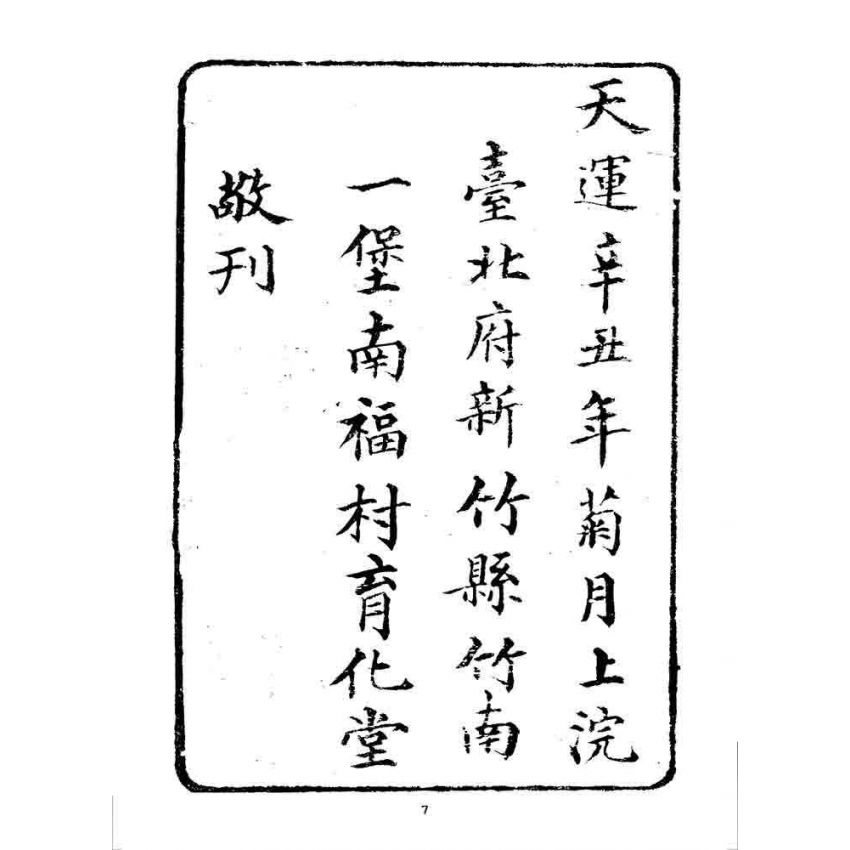 天運辛丑年菊月上浣
臺北府新竹縣竹南
一堡南福村育化堂
敬刊
7